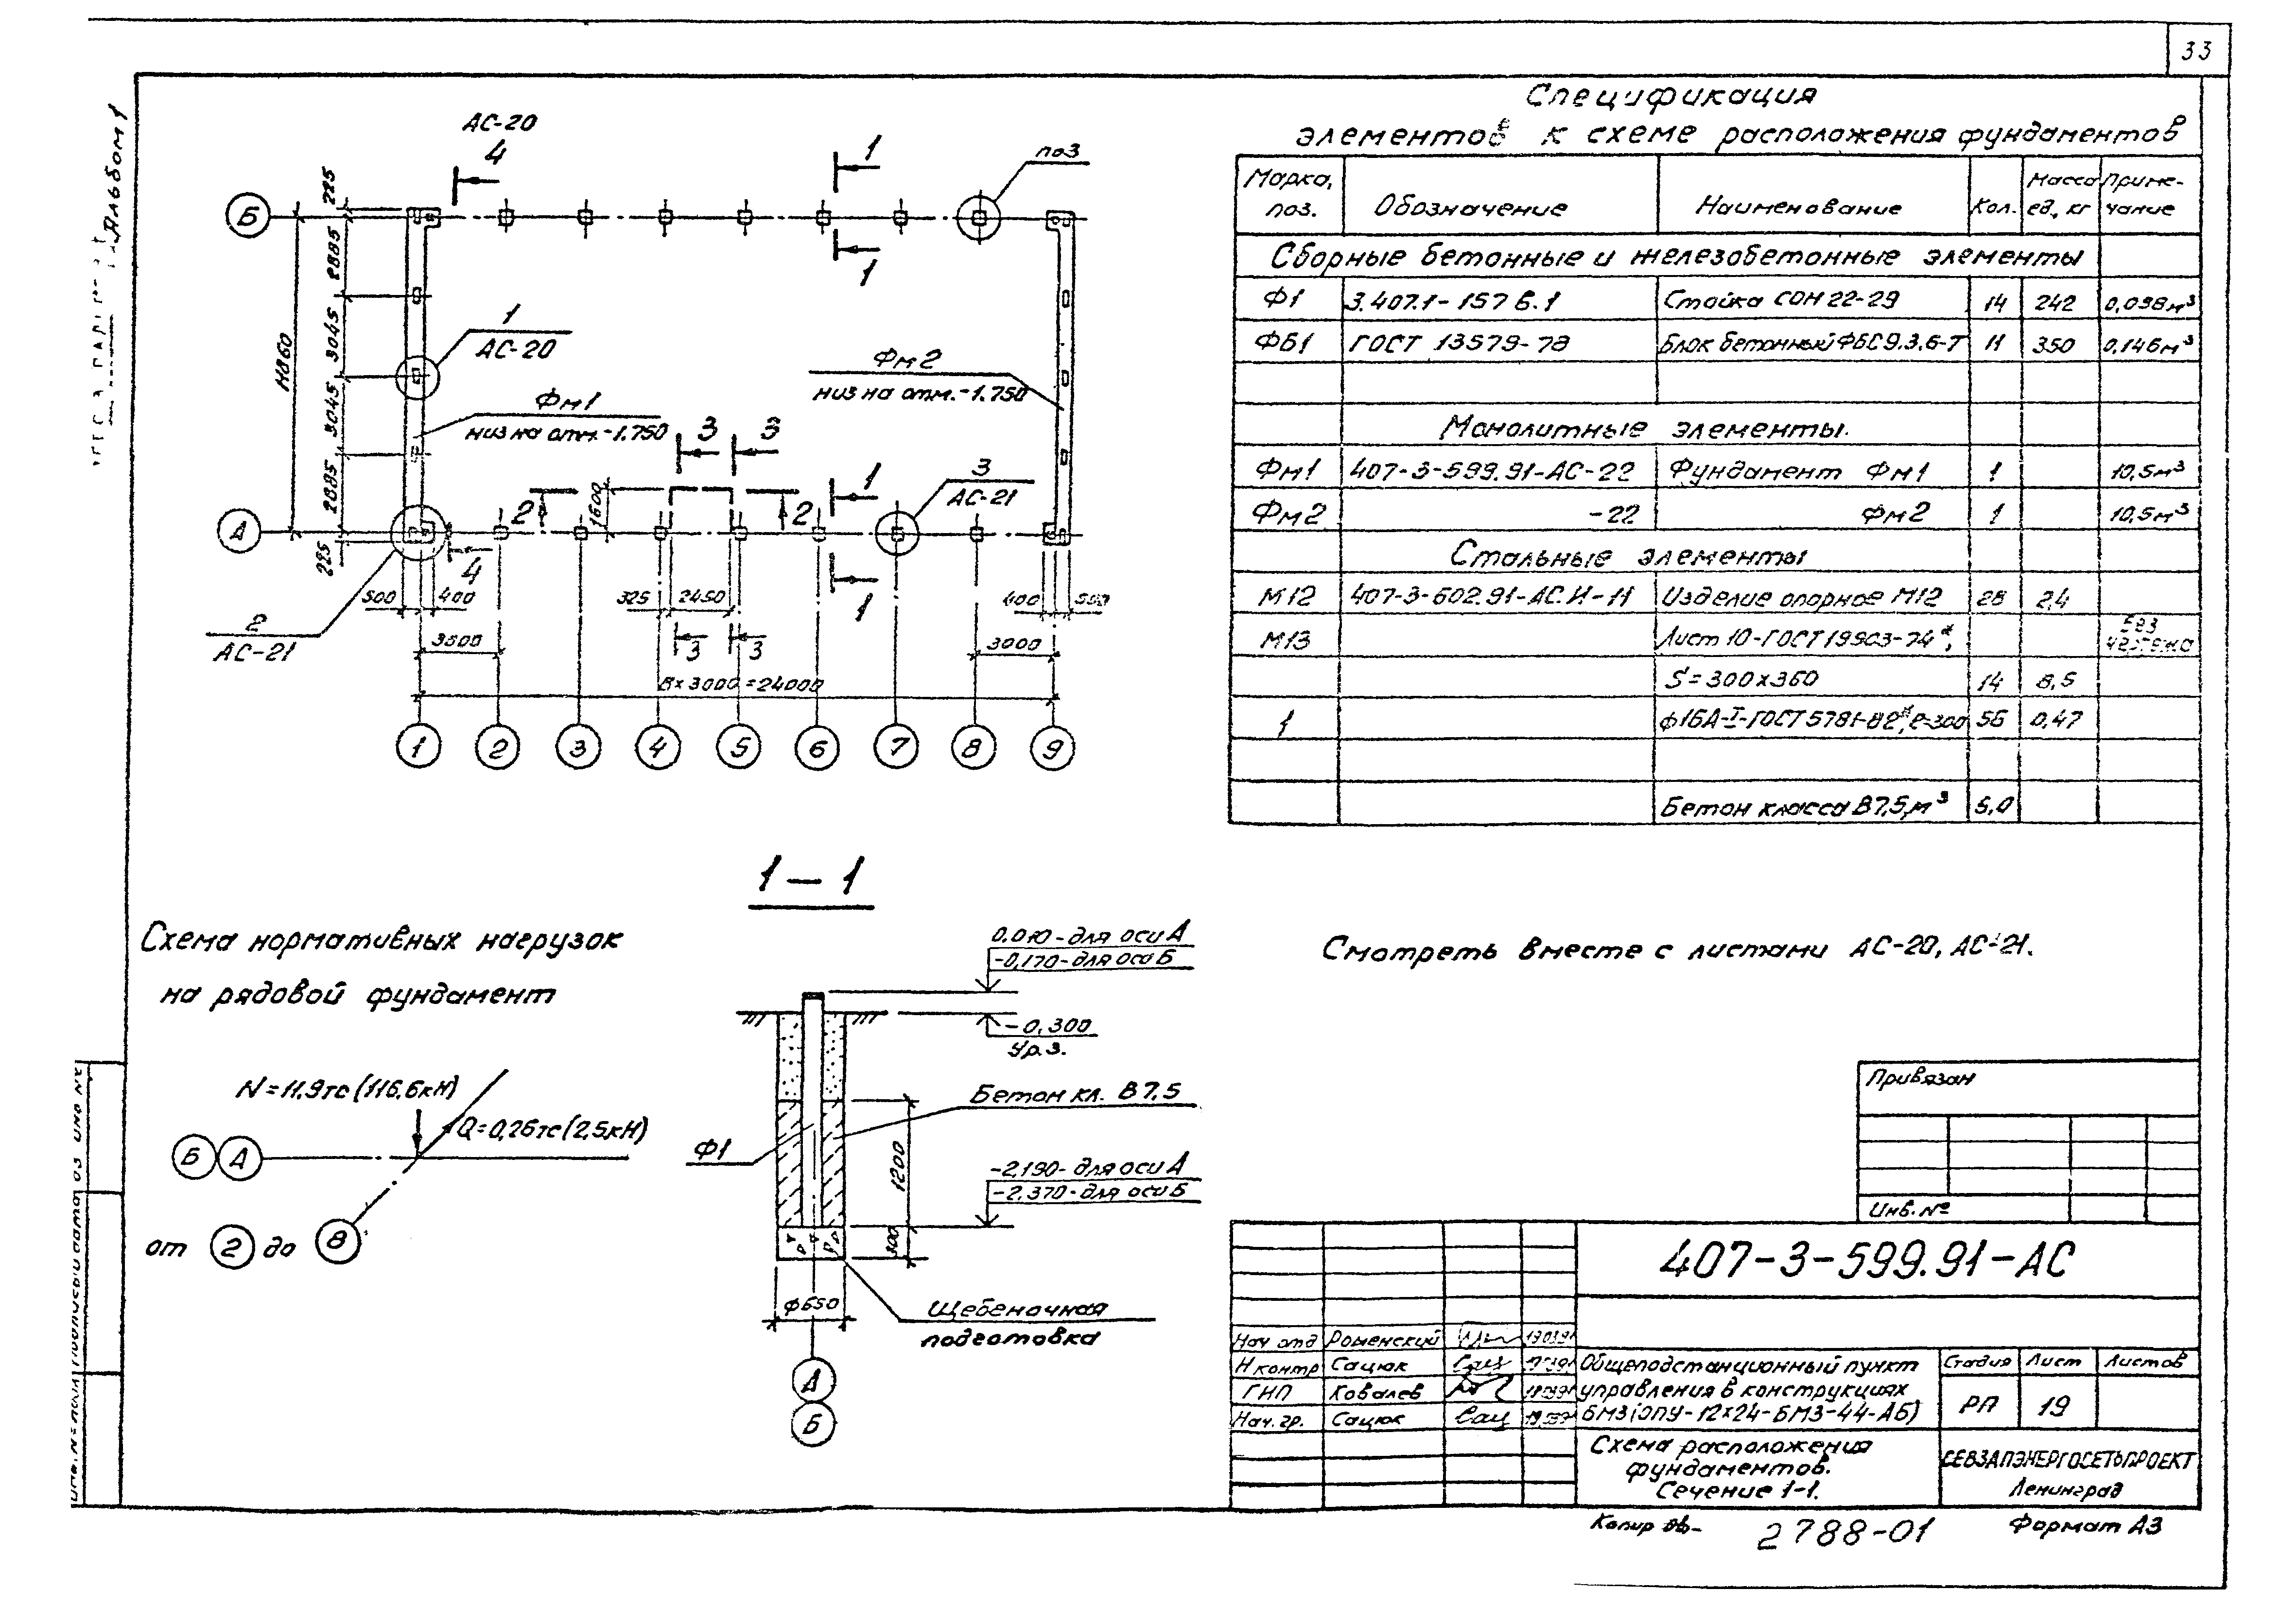 33
Альбом 1
АС-20
4
1
поз
Б
225
2885
3045
3045
2885
225
11860
1
АС-20
Фм1
низ на отм.-1.750
Фм2
низ на отм.-1.750
3
3
1
1600
2
2
3
АС-21
А
4
1
1
500
400
325
2450
400
500
2
АС-21
3000
3
3
3000
8×3000=24000
1
2
3
4
5
6
7
8
9
Спецификация
элементов к схеме расположения фундаментов
Марка, поз.
Обозначение
Наименование
Кол.
Масса ед, кг
Примечание
Сборные бетонные и железобетонные элементы
Ф1 3.407.1-157 В.1 Стойка СОН 22-29 14 242 0,098м³
ФБ1 ГОСТ 13579-78 Блок бетонный ФБС9.3.6-Т 11 350 0,146м³
Монолитные элементы.
Фм1 407-3-599.91-АС-22 Фундамент Фм1 1 10,5м³
Фм2 -22 Фм2 1 10,5м³
Стальные элементы
М12 407-3-602.91-АС.И-11 Изделие опорное М12 28 2,4
М13 Лист 10-ГОСТ 19903-74*, без чертежа
S=300×360 14 8,5
1 ф16А-I-ГОСТ 5781-82*, ℓ=300 56 0,47
Бетон класса В7,5, м³ 5,0
1-1
Схема нормативных нагрузок
на рядовой фундамент
N=11,9тс (116,6кН)
Q=0,26тс (2,5кН)
Б А
от 2 до 8
0.010-для оси А
-0,170-для оси Б
-0,300
Ур.з.
Бетон кл. В7,5
Ф1
1200
-2,190-для оси А
-2,370-для оси Б
300
ф650
Щебеночная
подготовка
А
Б
Смотреть вместе с листами АС-20, АС-21.
Привязан
Инв. №
407-3-599.91-АС
Нач отд Роменский
Н контр Сацюк
ГИП Ковалев
Нач. гр. Сацюк
Общеподстанционный пункт
управления в конструкциях
БМЗ (ОПУ-12×24-БМЗ-44-АБ)
Стадия Лист Листов
РП 19
Схема расположения
фундаментов.
Сечение 1-1.
СЕВЗАПЭНЕРГОСЕТЬПРОЕКТ
Ленинград
Копир
2788-01
Формат А3